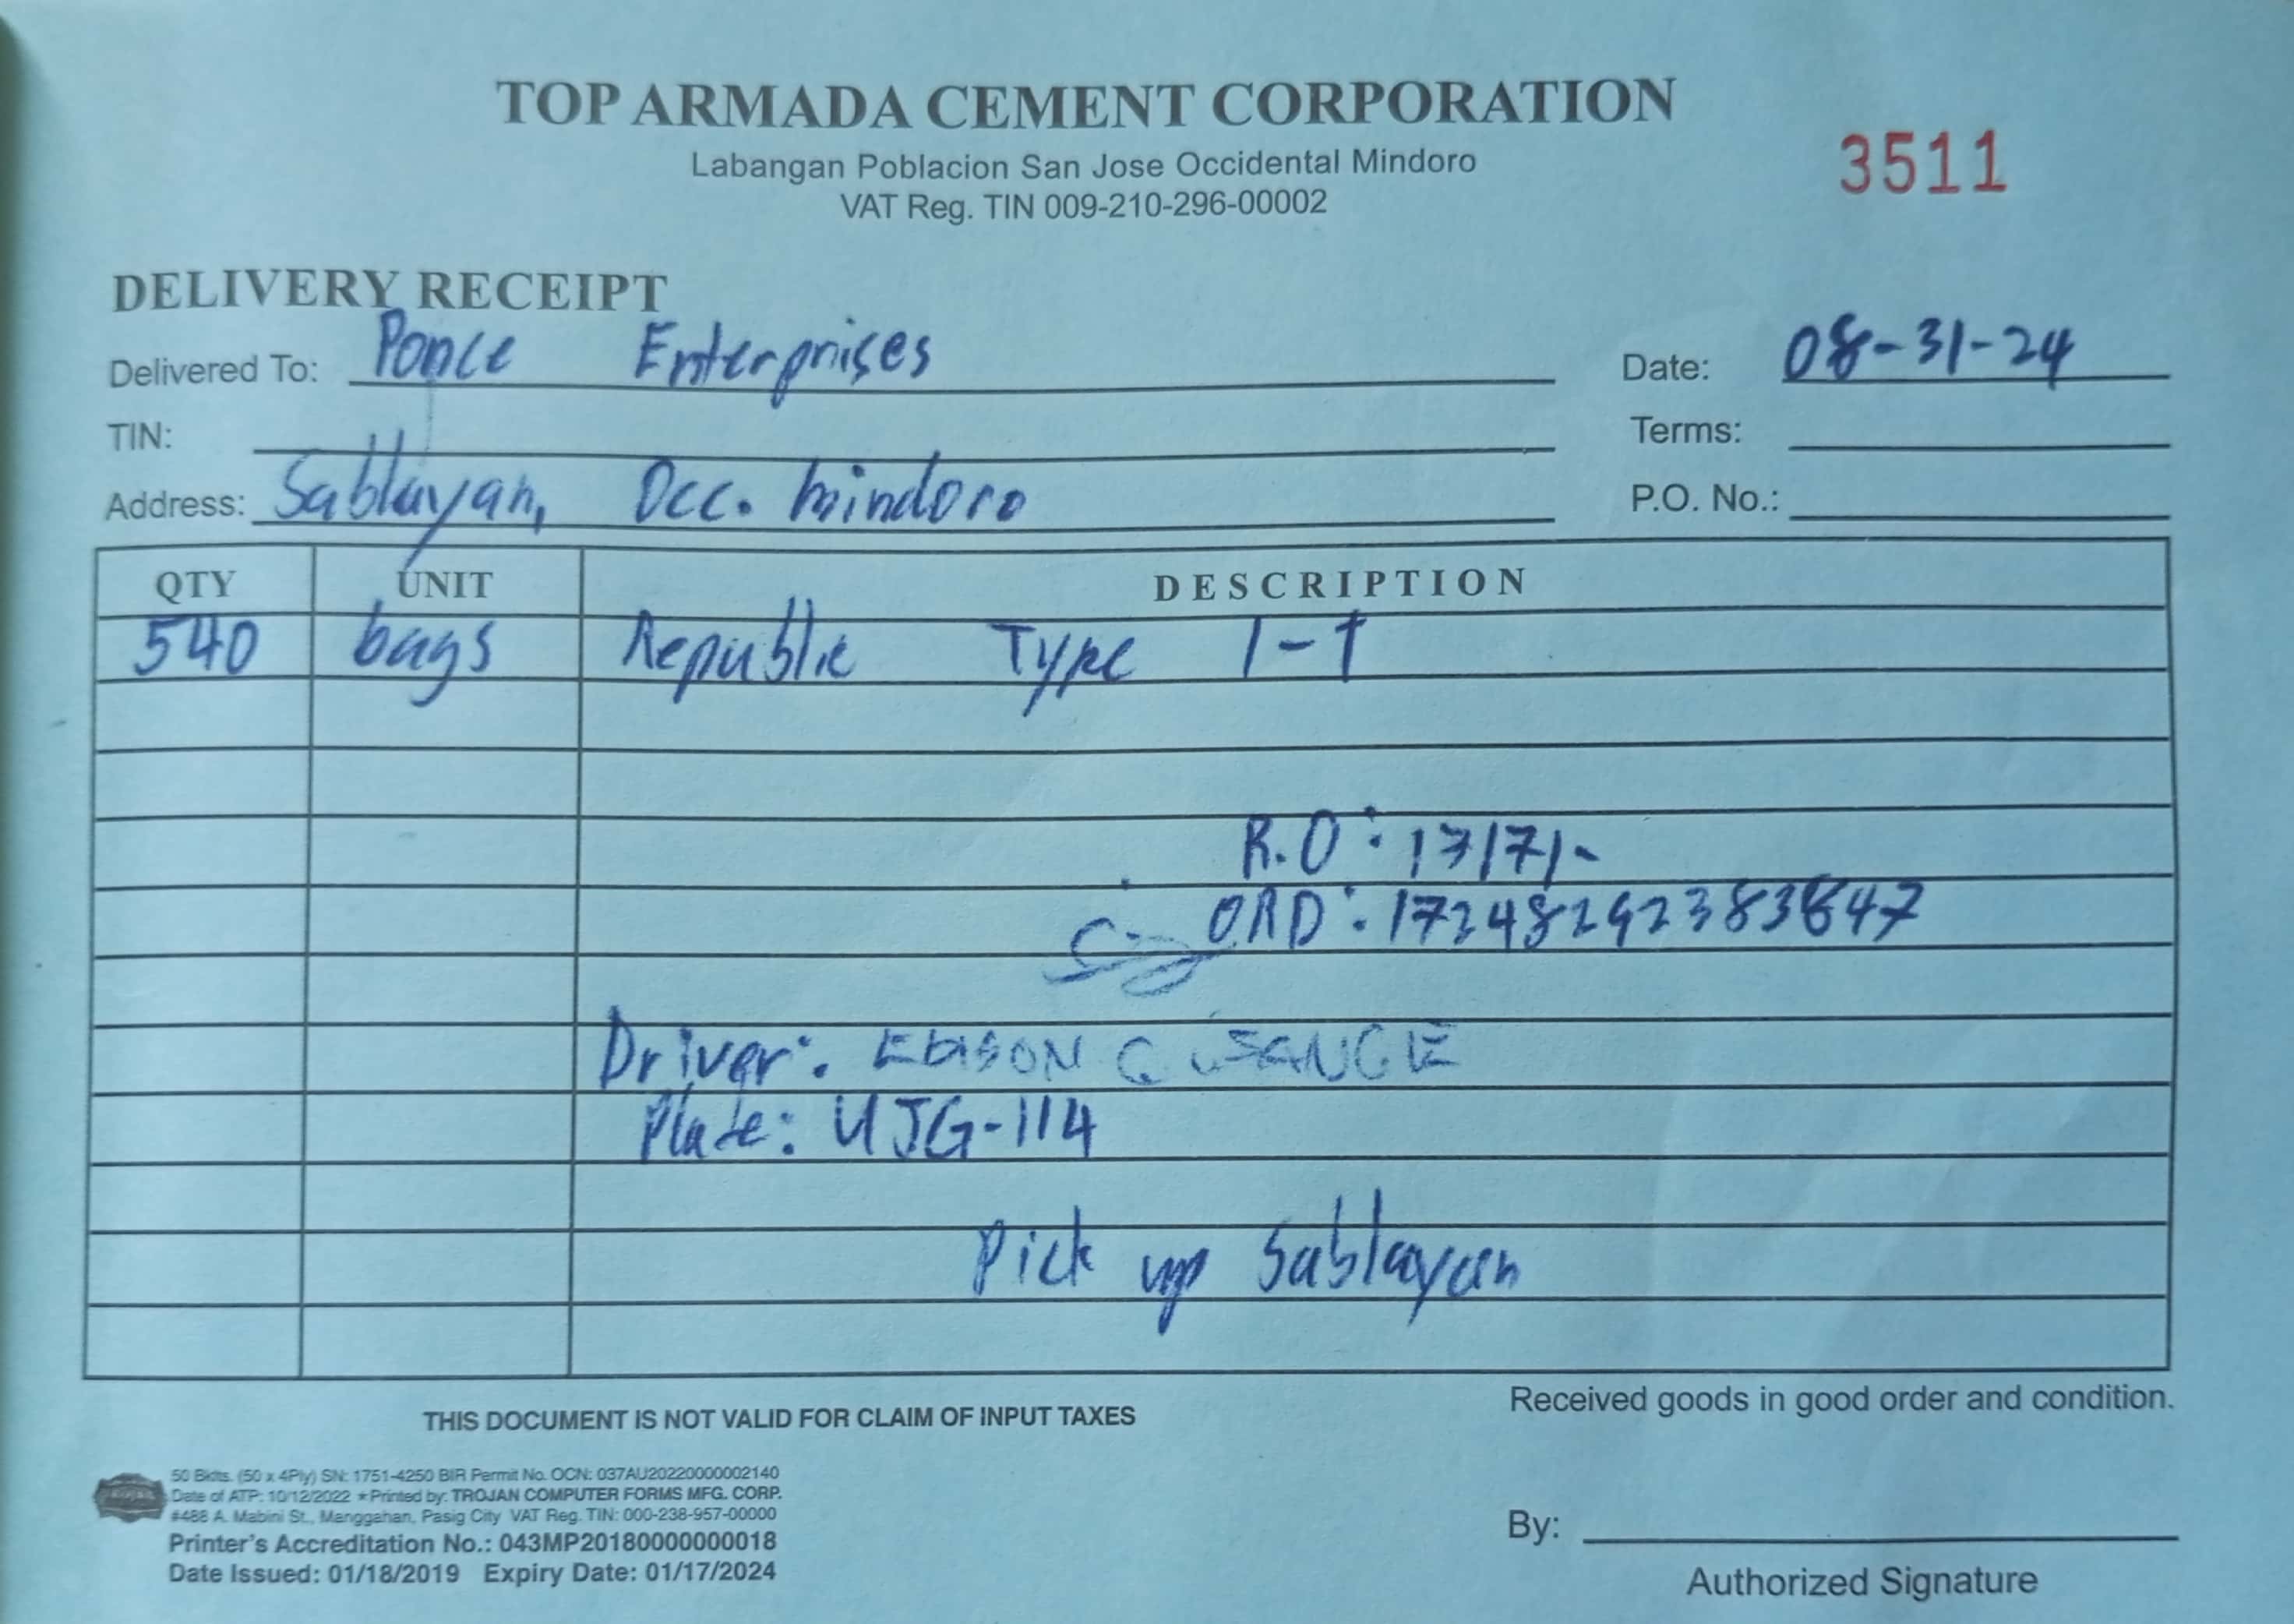 TOP ARMADA CEMENT CORPORATION
Labangan Poblacion San Jose Occidental Mindoro
VAT Reg. TIN 009-210-296-00002
3511
DELIVERY RECEIPT
Delivered To: Ponce Enterprises
Date: 08-31-24
TIN:
Terms:
Address: Sablayan, Occ. Mindoro
P.O. No.:
QTY UNIT DESCRIPTION
540 bags Republic Type 1-T
R.O: 17171-
ORD: 17248292383647
Driver: EDISON
Plate: UJG-114
Pick up Sablayan
THIS DOCUMENT IS NOT VALID FOR CLAIM OF INPUT TAXES
Received goods in good order and condition.
50 Bklts. (50 x 4Ply) SN: 1751-4250 BIR Permit No. OCN: 037AU20220000002140
Date of ATP: 10/12/2022 *Printed by: TROJAN COMPUTER FORMS MFG. CORP.
#488 A. Mabini St., Manggahan, Pasig City VAT Reg. TIN: 000-238-957-00000
Printer's Accreditation No.: 043MP20180000000018
Date Issued: 01/18/2019 Expiry Date: 01/17/2024
By:
Authorized Signature